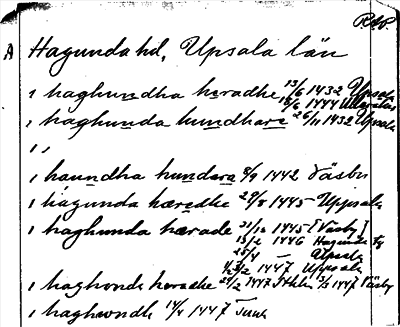 RAP.
A Hagunda hd, Upsala län
, haghundha heradhe 13/6 1432 Upsala
15/6 1444
, haghunda hundhare 26/11 1432 Upsala
, ,
, haundha hundera 8/9 1442 Väsby
, hagunda hæredhe 29/8 1445 Uppsala
, haghunda hærade 21/10 1445 [Väsby]
15/2 1446 Hagunda
25/4 — Upsala
1447 Uppsala
, haghonds heradhe 24/2 1447 Sthlm 3/3 1447 Väsby
, haghwndh 14/4 1447